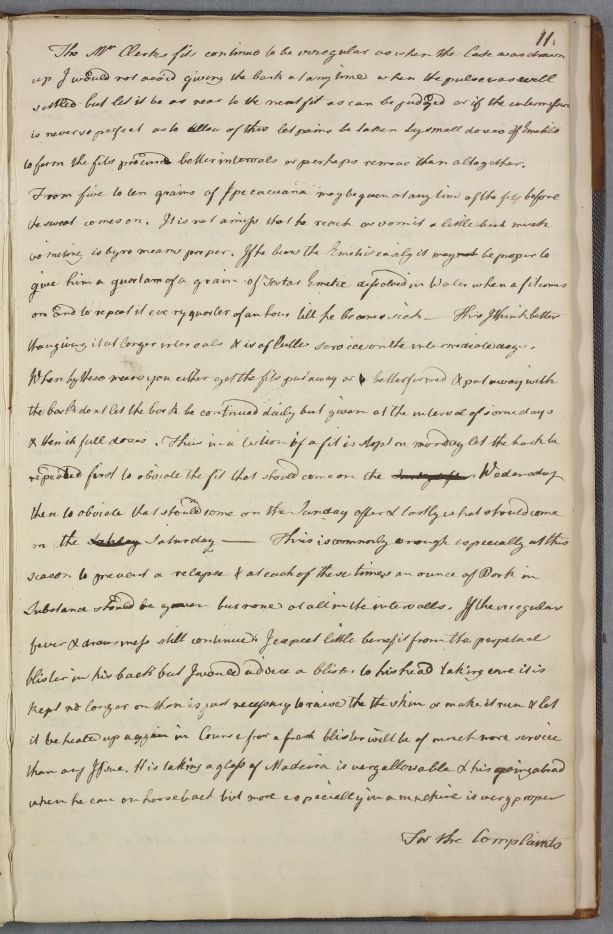 11.
Tho Mr Clerks fits continue to be irregular as when the Case was drawn
up I would not avoid giving the bark at any time when the pulse was well
settled but let it be as near to the next fit as can be judged or if the intermission
is never so perfect as to allow of this let pains be taken by small doses of Emetics
to form the fits procure better intervals or perhaps remove them altogether.
From five to ten grains of Ipecacuana may be given at any time of the fits before
the sweat comes on. It is not amiss that he reach or vomit a little but much
vomiting is by no means proper. If he bears the Emetic easily it may be proper to
give him a quortam of a grain of Tartar Emetic dissolved in Water when a fit comes
on and to repeat it every quarter of an hour till he becomes sick — This I think better
than giving it at longer intervals & is of little service on the intermediate days.
When by these means you either get the fits put away or better formed & put away with
the bark dont let the bark be continued daily but given at the interval of some days
& then in full doses. Thus in a tertian if a fit is stopt on monday let the bark be
repeated first to obviate the fit that should come on the Wedensday
then to obviate that should come on the Sunday after & lastly what should come
on the Saturday — This is commonly enough especially at this
season to prevent a relapse & at each of these times an ounce of Bark in
Substance should be given but none at all in the intervalls. If the irregular
fever & drowsiness still continue I expect little benefit from the perpetual
blister in his back but I would advice a blister to his head taking care it is
kept no longer on than is just necessary to raise the the skin or make it run & let
it be healed up again in Course for a fresh blister will be of much more service
than any Issue. His taking a glass of Madeira is very allowable & his going abroad
when he can on horseback but more especially in a machine is very proper
For the Complaints